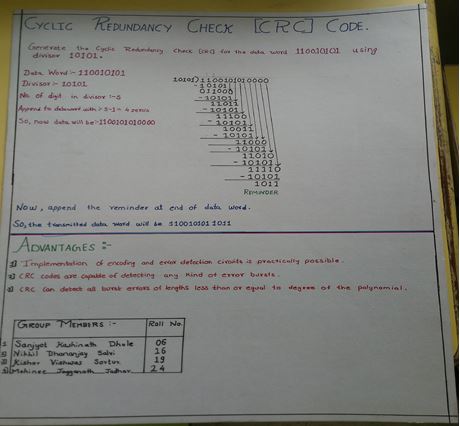 CYCLIC REDUNDANCY CHECK [CRC] CODE.
Generate the Cyclic Redundancy Check [CRC] for the data word 110010101 using
divisor 10101.
Data Word :- 110010101
Divisor :- 10101
No. of digit in divisor :- 5
Append to dataword with :- 5-1 = 4 zeros
So, now data will be :- 1100101010000
10101)1100101010000
-10101
011000
-10101
11011
-10101
11100
-10101
10011
-10101
11000
-10101
11010
-10101
11110
-10101
1011
REMINDER
Now, append the reminder at end of data word.
So, the transmitted data word will be 1100101011011
ADVANTAGES :-
1) Implementation of encoding and error detection circuits is practically possible.
2) CRC codes are capable of detecting any kind of error bursts.
3) CRC can detect all burst errors of lengths less than or equal to degree of the polynomial.
GROUP MEMBERS :- Roll No.
1) Sanjyot Kashinath Dhole 06
2) Nikhil Dhananjay Salvi 16
3) Kishor Vishwas 19
4) Mohinee Jagganath Jadhav. 24